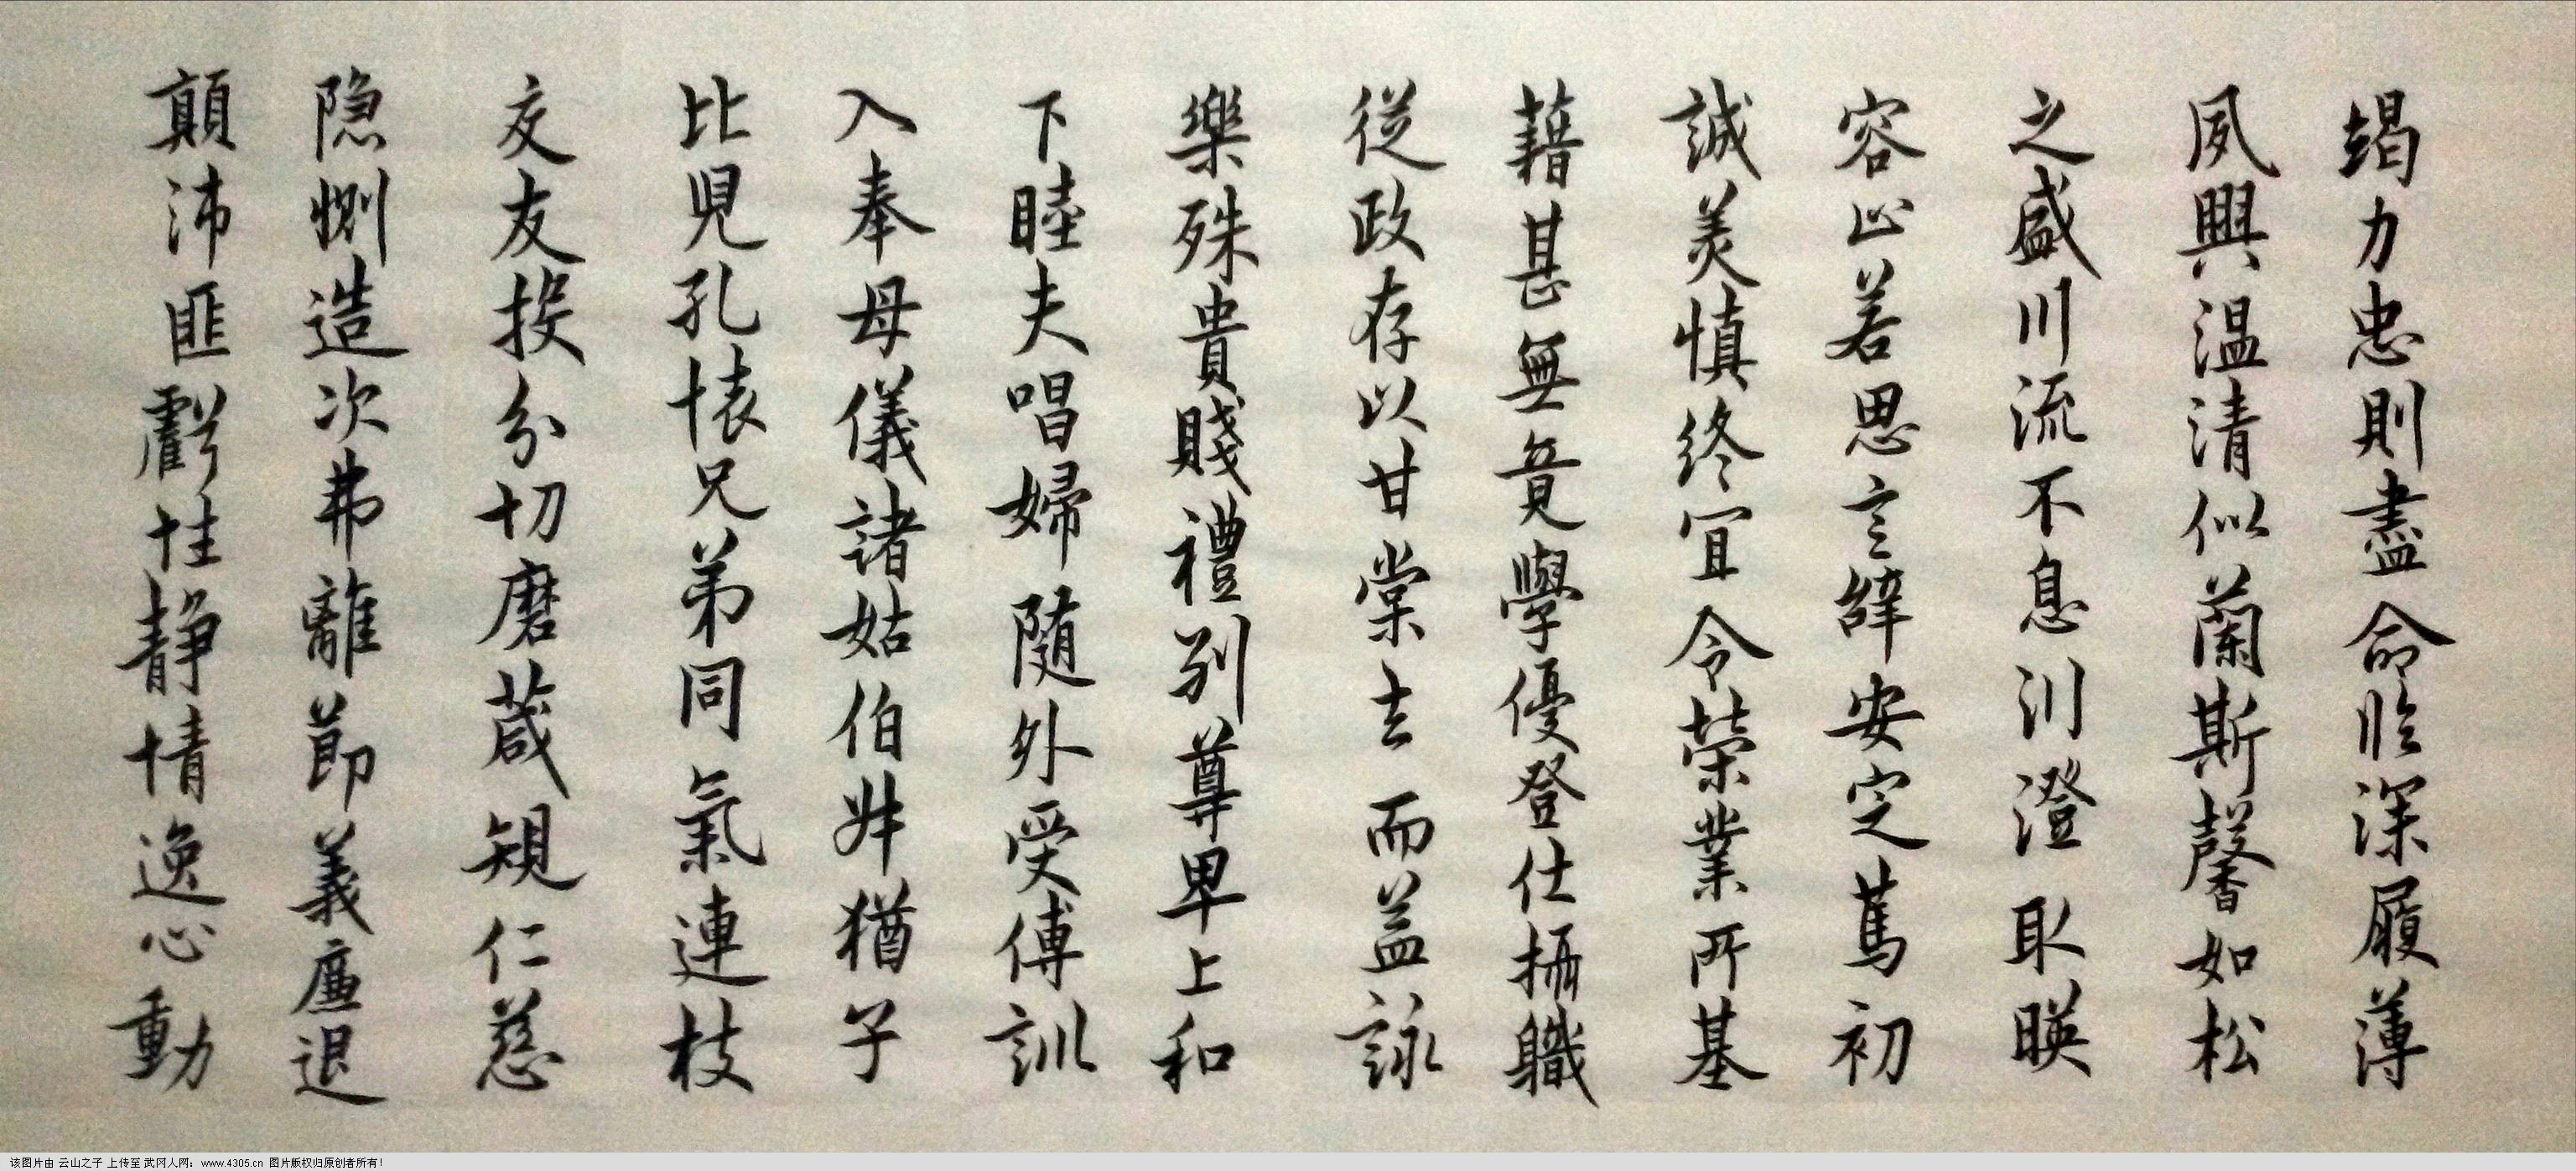 竭力忠則盡命臨深履薄
夙興温清似蘭斯馨如松
之盛川流不息川澄取暎
容止若思言辞安定萬初
誠美慎終宜令榮業所基
藉甚無竟學優登仕攝職
從政存以甘棠去而益詠
樂殊貴賤禮别尊卑上和
下睦夫唱婦随外受傅訓
入奉母儀諸姑伯叔猶子
比兒孔懐兄弟同氣連枝
交友投分切磨葴規仁慈
隐惻造次弗離節義廉退
顛沛匪虧性静情逸心動
该图片由 云山之子 上传至 武冈人网：www.4305.cn 图片版权归原创者所有！